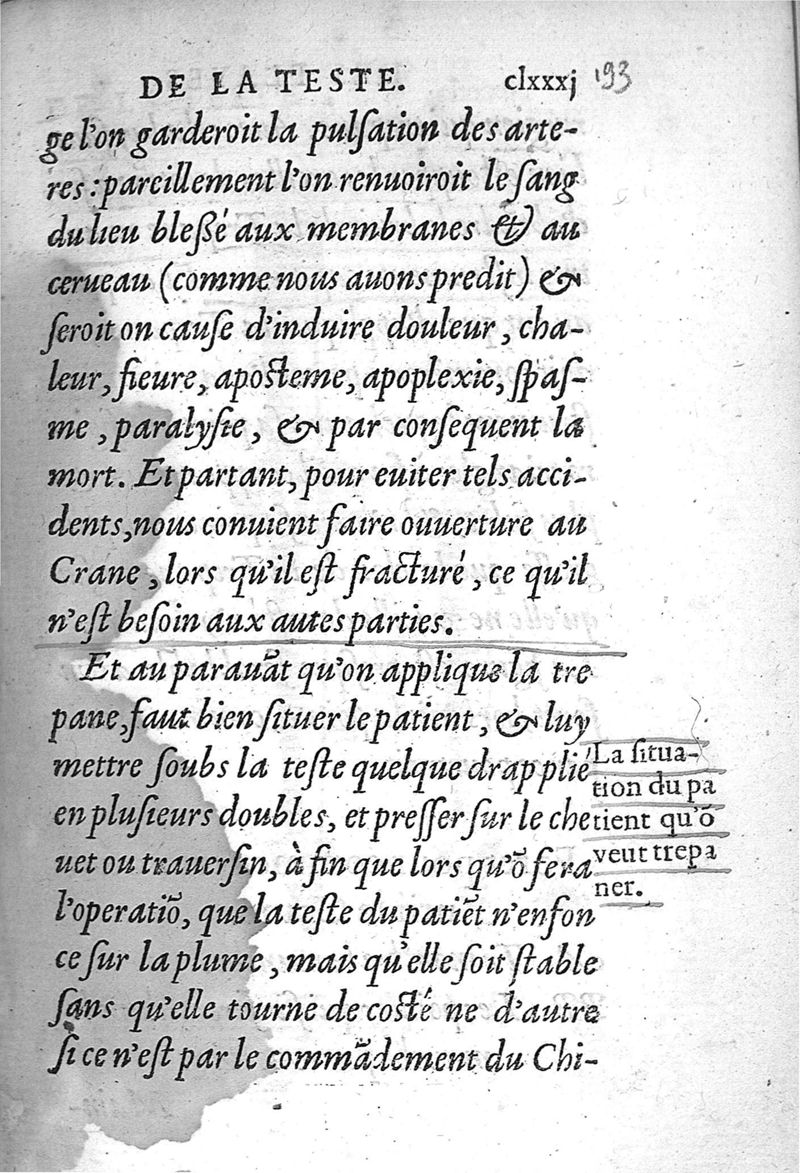 DE LA TESTE. clxxxj 193
ge l'on garderoit la pulſation des arte-
res : pareillement l'on renuoiroit le ſang
du lieu bleßé aux membranes & au
cerueau (comme nous auons predit) &
ſeroit on cauſe d'induire douleur, cha-
leur, fieure, apoſteme, apoplexie, ſpaſ-
me, paralyſie, & par conſequent la
mort. Et partant, pour euiter tels acci-
dents, nous conuient faire ouuerture au
Crane, lors qu'il eſt fracturé, ce qu'il
n'eſt beſoin aux autes parties.
Et au parauāt qu'on applique la tre
pane, faut bien ſituer le patient, & luy
mettre ſoubs la teſte quelque drap plié
en pluſieurs doubles, et preſſer ſur le che
uet ou trauerſin, à fin que lors qu'ō fera
l'operatiō, que la teſte du patiēt n'enfon
ce ſur la plume, mais qu'elle ſoit ſtable
ſans qu'elle tourne de coſté ne d'autre
ſi ce n'eſt par le commādement du Chi-
La ſitua-
tion du pa
tient qu'ō
veut trepa
ner.